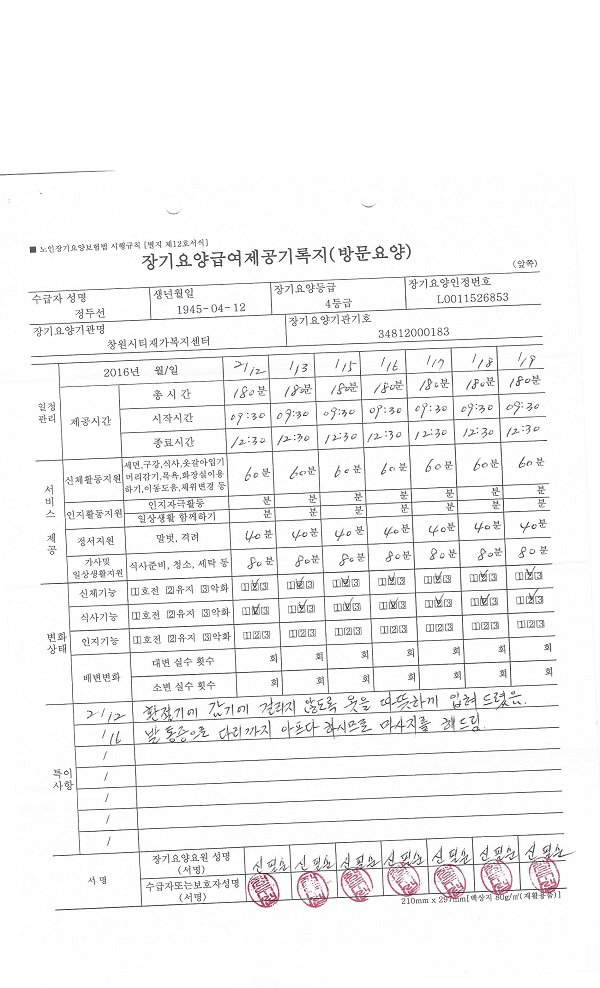 ■ 노인장기요양보험법 시행규칙 [별지 제12호서식]
장기요양급여제공기록지(방문요양)
(앞쪽)
수급자 성명 생년월일 장기요양등급 장기요양인정번호
정두선 1945-04-12 4등급 L0011526853
장기요양기관명 장기요양기관기호
창원시티재가복지센터 34812000183
2016년 월/일 2/12 1/13 1/15 1/16 1/17 1/18 1/19
일정관리 제공시간 총 시 간 180분 180분 180분 180분 180분 180분 180분
시작시간 09:30 09:30 09:30 09:30 09:30 09:30 09:30
종료시간 12:30 12:30 12:30 12:30 12:30 12:30 12:30
서비스 제공
신체활동지원 세면,구강,식사,옷갈아입기 머리감기,목욕,화장실이용하기,이동도움,체위변경 등 60분 60분 60분 60분 60분 60분 60분
인지활동지원 인지자극활동 분 분 분 분 분 분 분
일상생활 함께하기 분 분 분 분 분 분 분
정서지원 말벗, 격려 40분 40분 40분 40분 40분 40분 40분
가사및 일상생활지원 식사준비, 청소, 세탁 등 80분 80분 80분 80분 80분 80분 80분
변화상태
신체기능 ①호전 ②유지 ③악화 ①②③ ①②③ ①②③ ①②③ ①②③ ①②③ ①②③
식사기능 ①호전 ②유지 ③악화 ①②③ ①②③ ①②③ ①②③ ①②③ ①②③ ①②③
인지기능 ①호전 ②유지 ③악화 ①②③ ①②③ ①②③ ①②③ ①②③ ①②③ ①②③
배변변화 대변 실수 횟수 회 회 회 회 회 회 회
소변 실수 횟수 회 회 회 회 회 회 회
특이사항
2/12 환절기에 감기에 걸리지 않도록 옷을 따뜻하게 입혀 드렸음.
1/16 발 통증으로 다리까지 아프다 하시므로 마사지를 해드림.
/
/
/
/
서 명 장기요양요원 성명 (서명) 신필순 신필순 신필순 신필순 신필순 신필순 신필순
수급자또는보호자성명 (서명)
210mm x 297mm[백상지 80g/㎡(재활용품)]